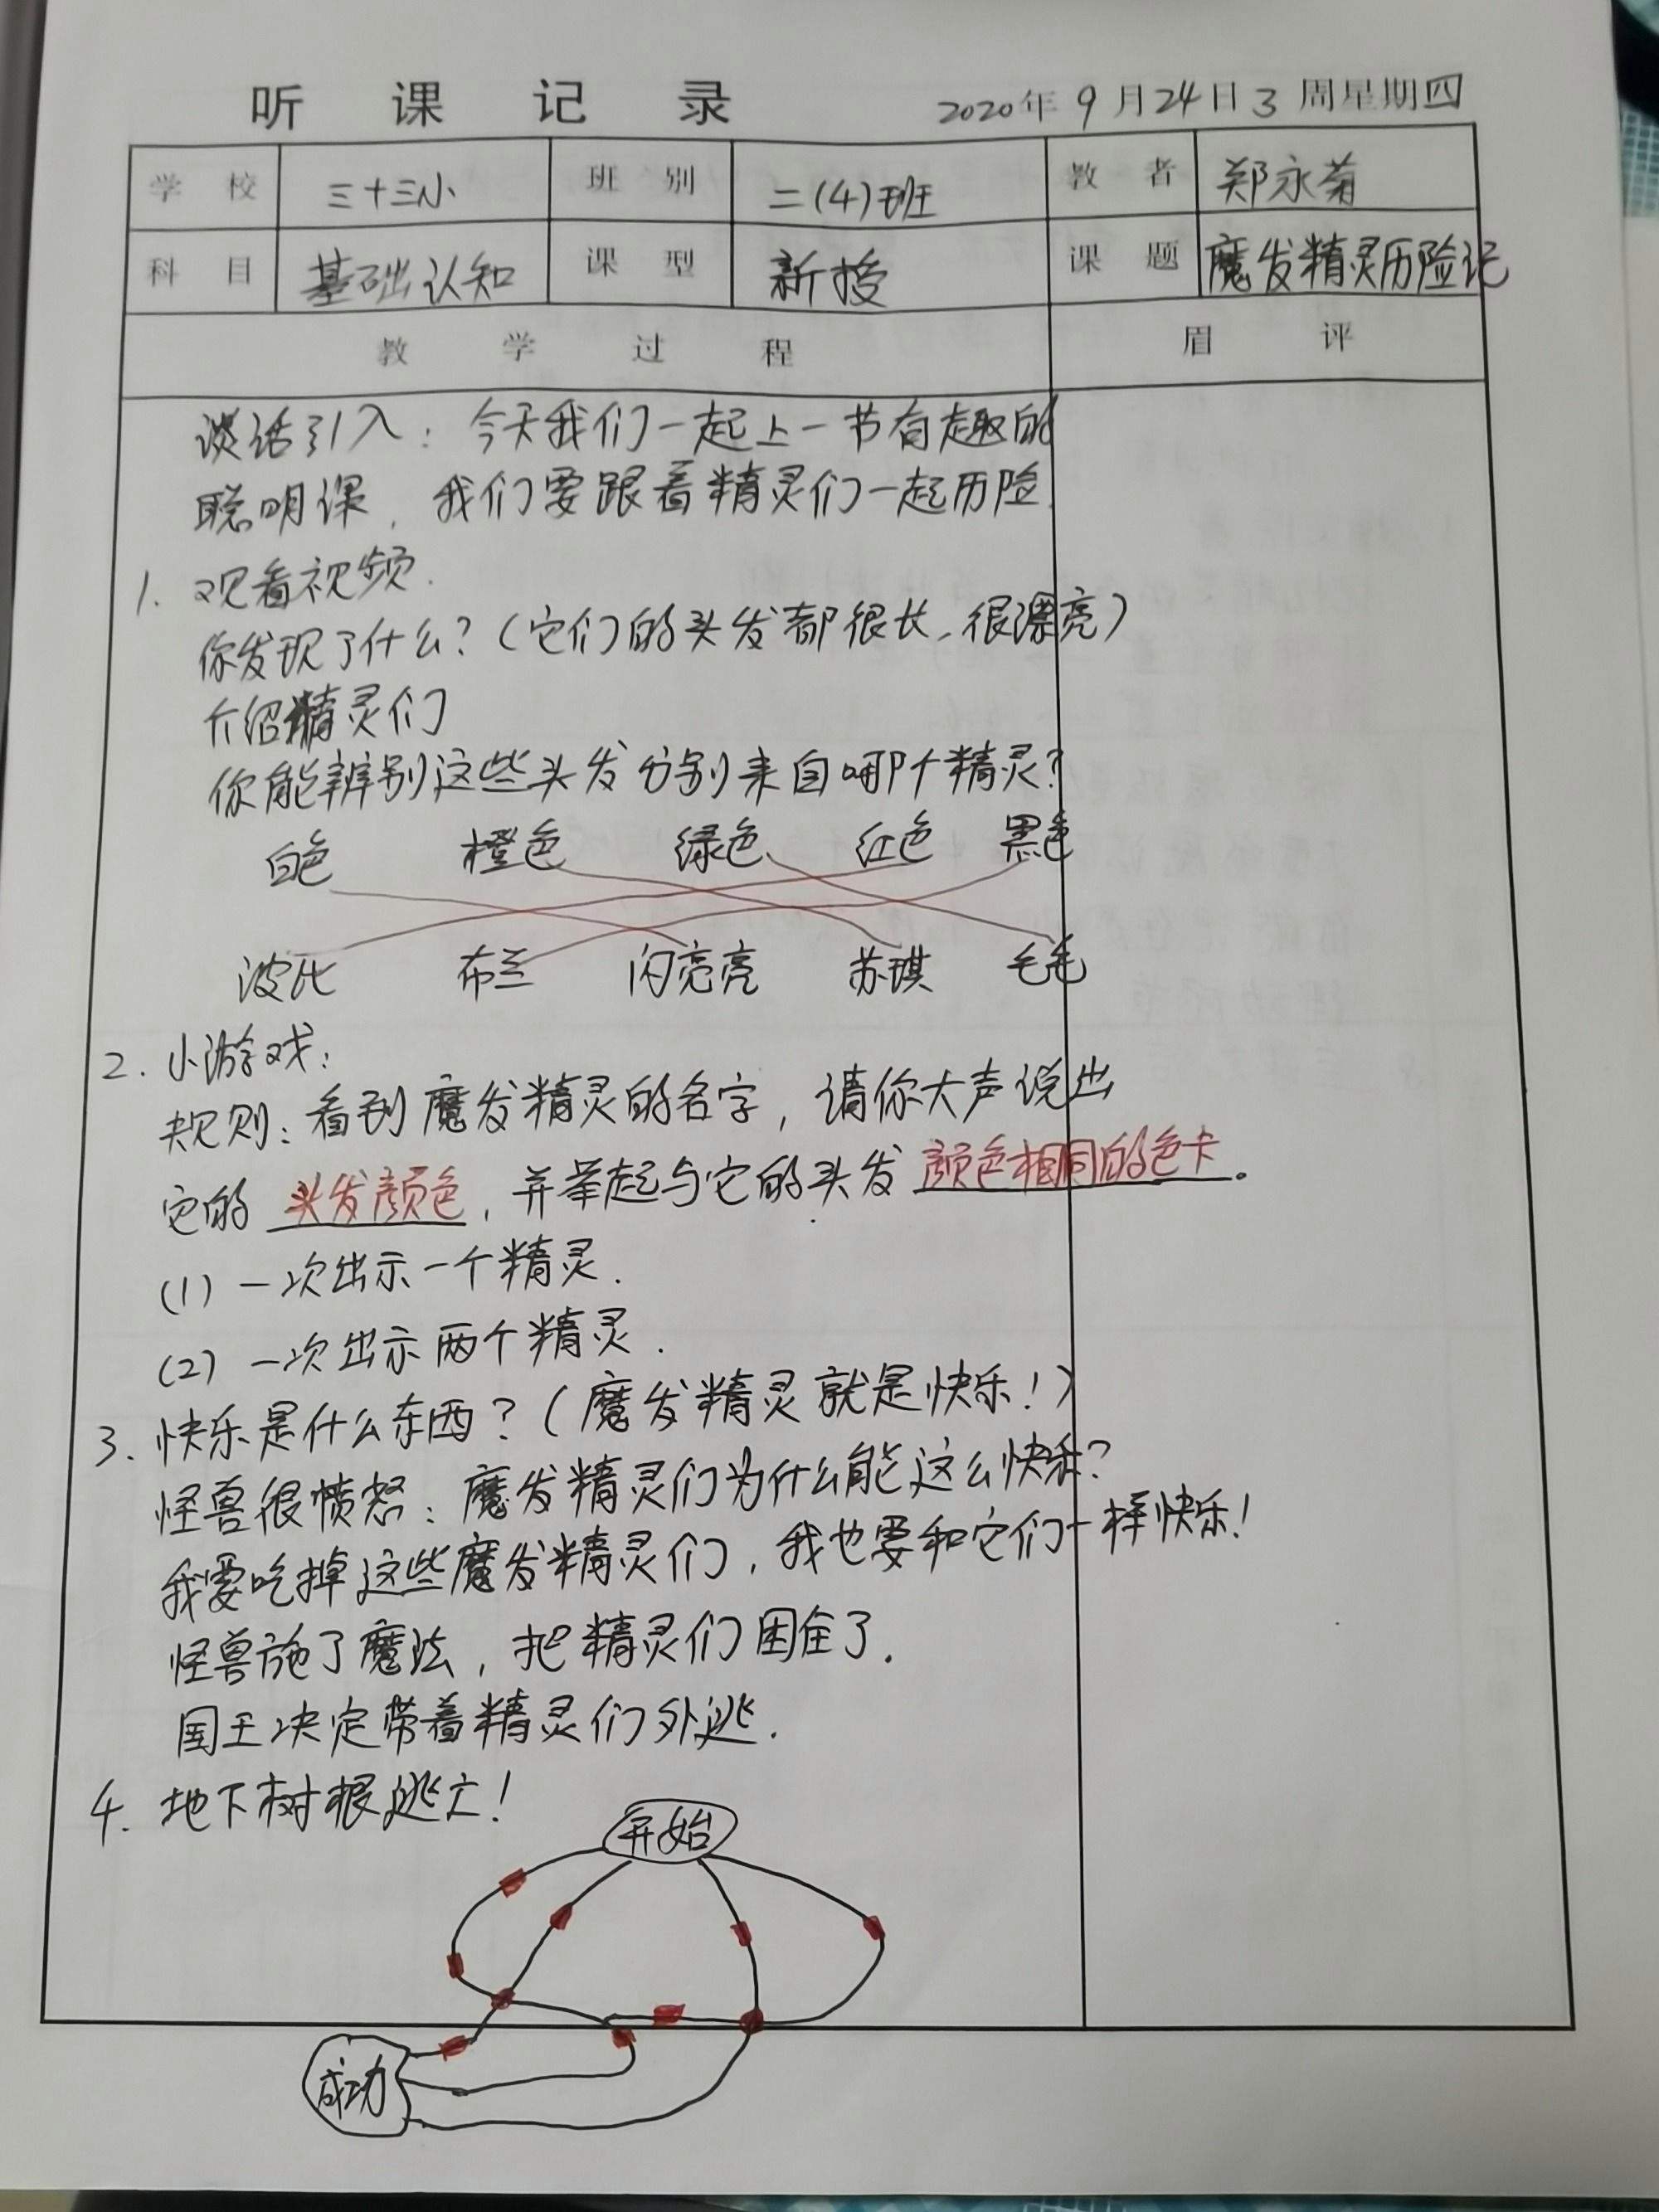 听课记录 2020年9月24日3周星期四
学校 三十三小 班别 二(4)班 教者 郑永菊
科目 基础认知 课型 新授 课题 魔发精灵历险记
教学过程 眉评
谈话引入：今天我们一起上一节有趣的
聪明课，我们要跟着精灵们一起历险.
1. 观看视频.
你发现了什么？（它们的头发都很长、很漂亮）
介绍精灵们
你能辨别这些头发分别来自哪个精灵？
白色 橙色 绿色 红色 黑色
波比 布兰 闪亮亮 苏琪 毛毛
2. 小游戏：
规则：看到魔发精灵的名字，请你大声说出
它的 头发颜色，并举起与它的头发 颜色相同的色卡。
(1) 一次出示一个精灵.
(2) 一次出示两个精灵.
3. 快乐是什么东西？（魔发精灵就是快乐！）
怪兽很愤怒：魔发精灵们为什么能这么快乐？
我要吃掉这些魔发精灵们，我也要和它们一样快乐！
怪兽施了魔法，把精灵们困住了.
国王决定带着精灵们外逃.
4. 地下树根逃亡！
开始
成功